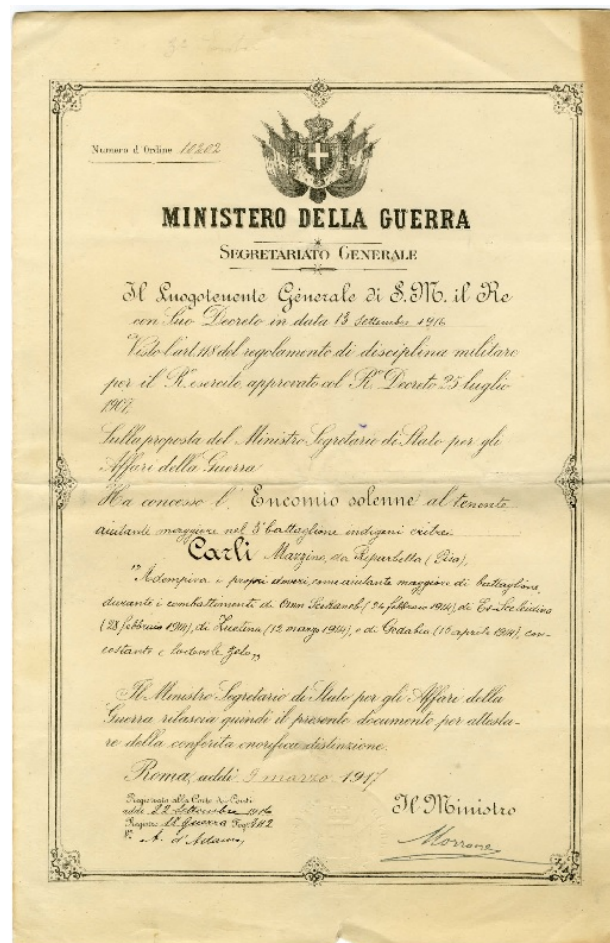 Numero d'Ordine 10202
MINISTERO DELLA GUERRA
SEGRETARIATO GENERALE
Il Luogotenente Generale di S. M. il Re
con Suo Decreto in data 13 settembre 1916
Visto l'art. 118 del regolamento di disciplina militare
per il R. esercito approvato col R. Decreto 25 luglio
1907,
Sulla proposta del Ministro Segretario di Stato per gli
Affari della Guerra
Ha concesso l'Encomio solenne al tenente
aiutante maggiore nel 5° battaglione indigeni eritrei
Carli Mazzino, da Riparbella (Pisa),
"Adempiva i propri doveri, come aiutante maggiore di battaglione,
durante i combattimenti di (26 febbraio 1914), di Es-Scleidima
(28 febbraio 1914), di Zuetina (12 marzo 1914), e di Gedabia (16 aprile 1914), con
costante e lodevole zelo"
Il Ministro Segretario di Stato per gli Affari della
Guerra rilascia quindi il presente documento per attesta-
re della conferita onorifica distinzione.
Roma, addì 9 marzo 1917
Registrato alla Corte dei Conti
addì 22 settembre 1916
Registro 18 Guerra Fog. 382
F.° A. d'Adamo
Il Ministro
Morrone